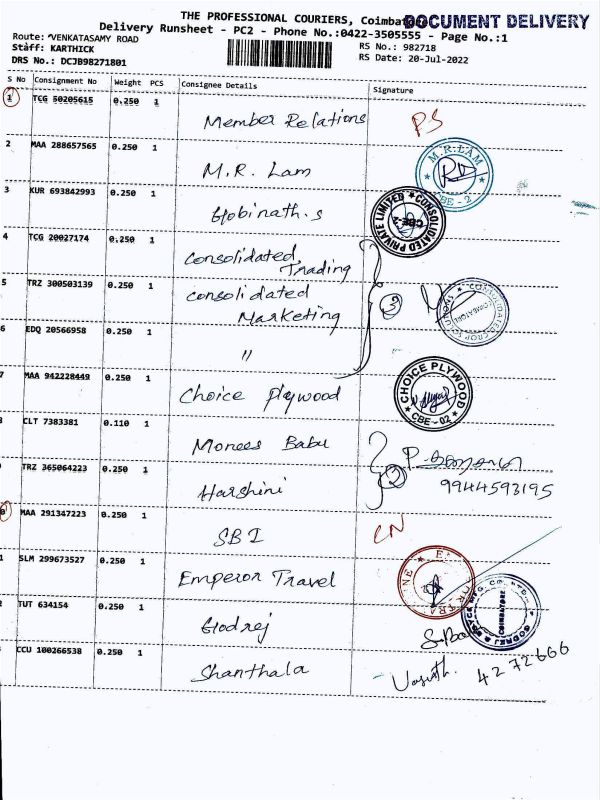 THE PROFESSIONAL COURIERS, Coimbatore
DOCUMENT DELIVERY
Delivery Runsheet - PC2 - Phone No.:0422-3505555 - Page No.:1
Route: VENKATASAMY ROAD
Staff: KARTHICK
RS No.: 982718
DRS No.: DCJB98271801
RS Date: 20-Jul-2022
S No Consignment No Weight PCS Consignee Details Signature
1 TCG 50205615 0.250 1 Member Relations PS
2 MAA 288657565 0.250 1 M.R. Lam M.R.LAM CBE - 2
3 KUR 693842993 0.250 1 Gobinath.s CONSOLIDATED PRIVATE LIMITED CBE-2
4 TCG 20027174 0.250 1 Consolidated
Trading
5 TRZ 300503139 0.250 1 consolidated 3
Marketing
6 EDQ 20566958 0.250 1 "
7 MAA 942228449 0.250 1 Choice Plywood CHOICE PLYWOOD CBE-02
CLT 7383381 0.110 1 Monees Babu
TRZ 365064223 0.250 1 Harshini 2 9944593195
0 MAA 291347223 0.250 1 SBI CN
1 SLM 299673527 0.250 1 Emperor Travel
2 TUT 634154 0.250 1 Godrej COIMBATORE
CCU 100266538 0.250 1 Shanthala 4272666